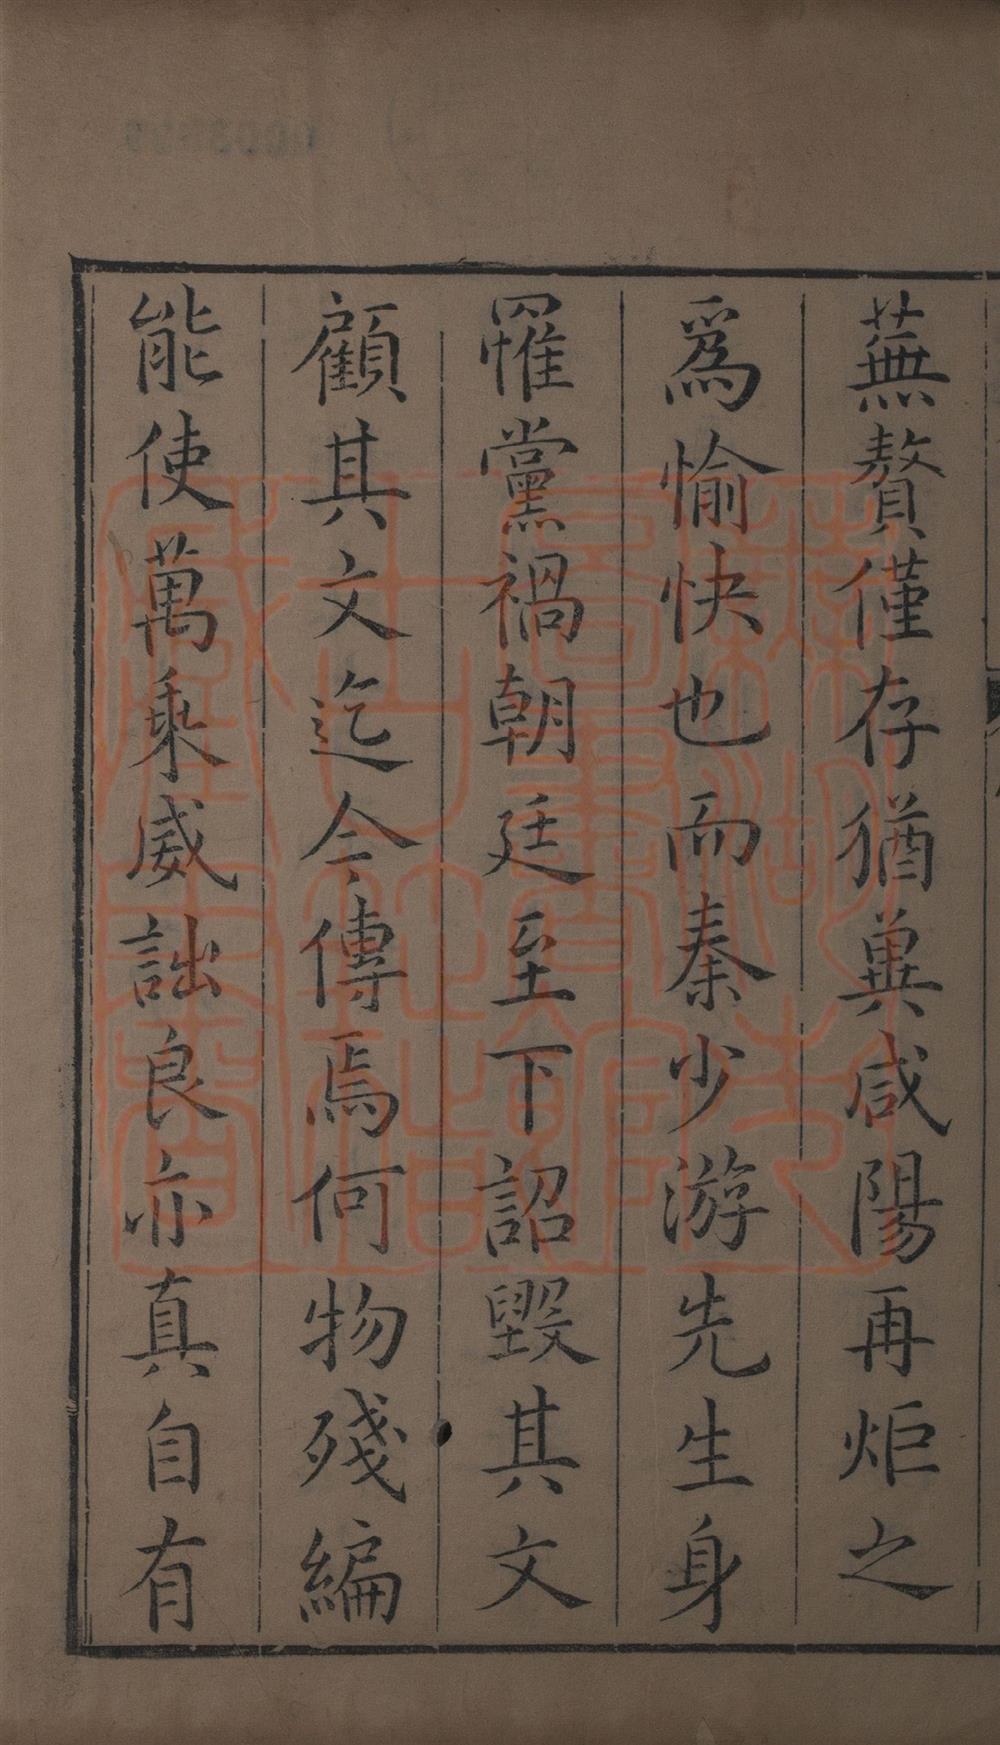 蕪贅僅存猶兾咸陽再炬之
爲愉快也而秦少游先生身
罹黨禍朝廷至下詔毀其文
顧其文迄今傳焉何物殘編
能使萬乘威詘良亦真自有